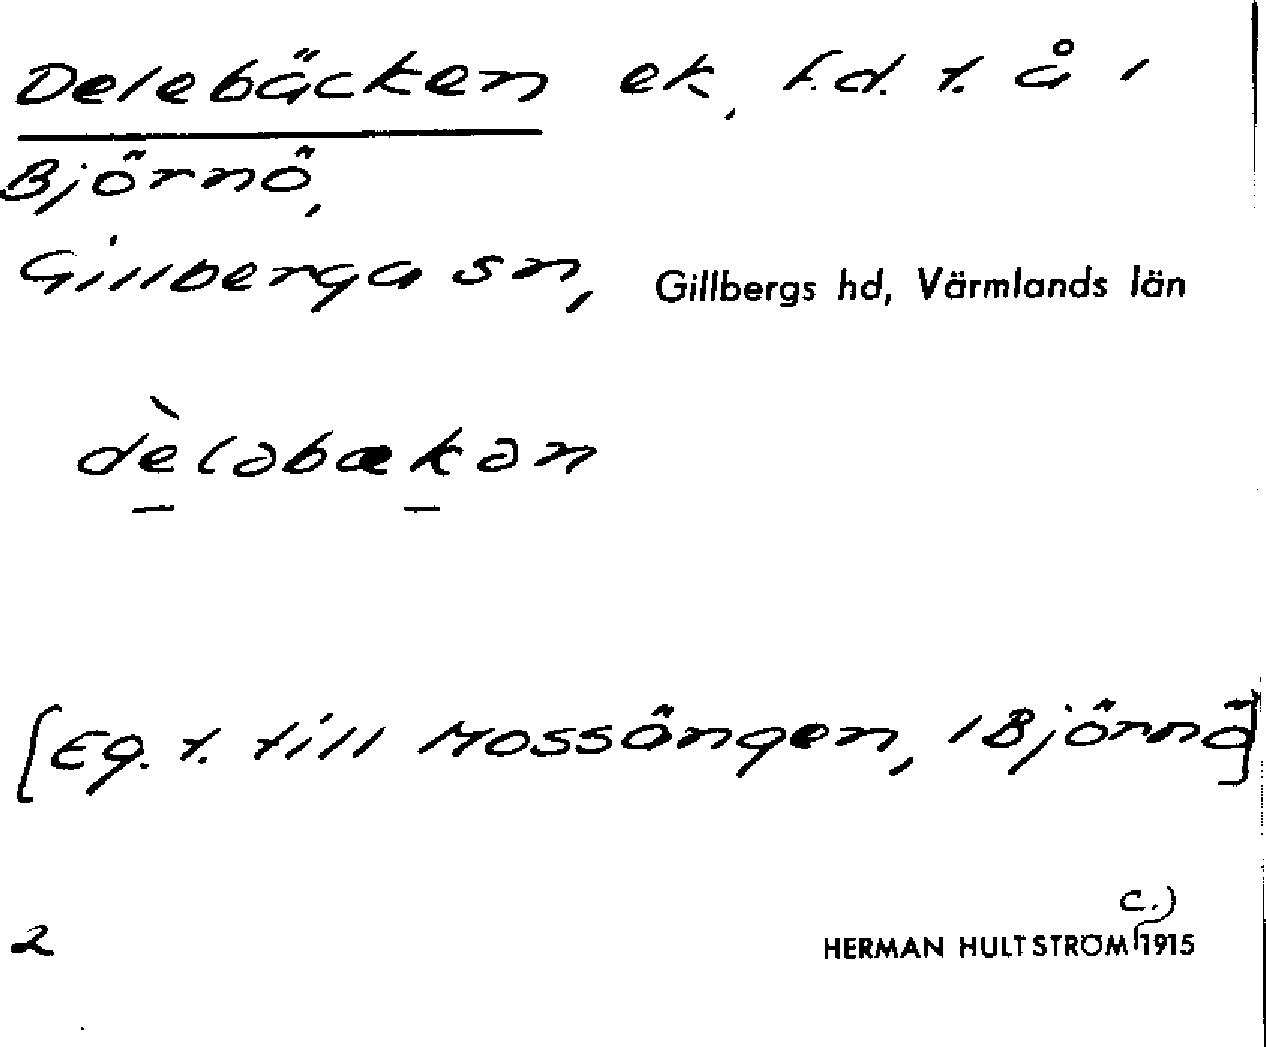 Delebäcken ek, f.d. t. å i
Björnö,
Gillberga sn, Gillbergs hd, Värmlands län
dèləbækən
[Eg. t. till Mossängen, i Björnö]
c.)
2 HERMAN HULTSTRÖM 1915